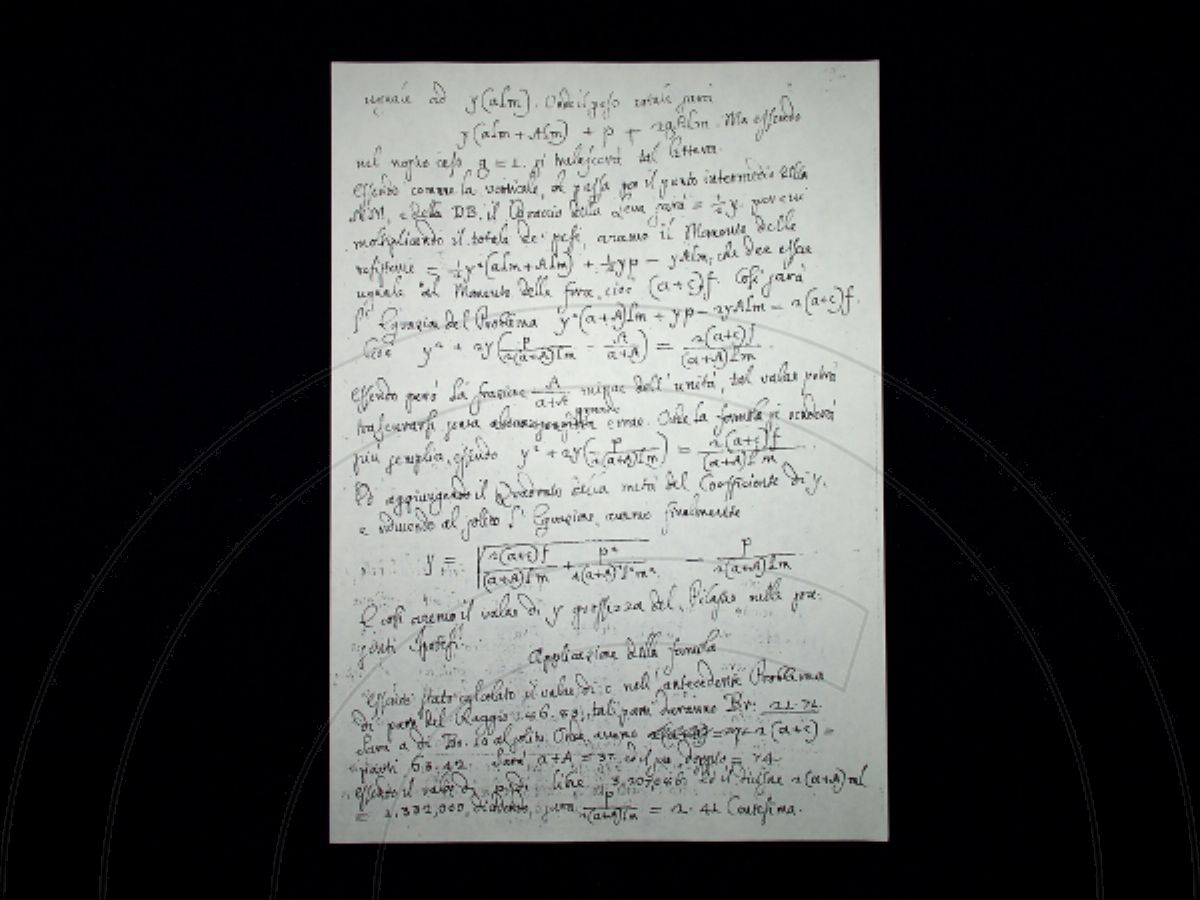 uguale ad y(alm). Onde il peso totale sarà
y(alm + Alm) + p + Alm. Ma essendo
nel nostro caso g = 1. si tralascerà tal lettera.
Essendo comune la verticale, che passa per il punto intermedio della
MM, e della DB. il braccio della Leva sarà = ½y. per cui
moltiplicando il totale de' pesi, aremo il Momento delle
resistenze = ½y²(alm+Alm) + ½yp − yAlm, che dee esser
uguale al Momento della forza, cioè (a+c)f. Così sarà
l' Equazion del Problema y²(a+A)lm + yp − 2yAlm = 2(a+c)f.
Cioè y² + 2y(p/2(a+A)lm − A/a+A) = 2(a+c)f/(a+A)lm.
Essendo però la frazione A/a+A minore dell' unità, tal valor potrà
trascurarsi senza grande errore. Onde la formula si renderà
più semplice, essendo y² + 2y(p/2(a+A)lm) = 2(a+c)f/(a+A)lm.
Ed aggiungendo il Quadrato della metà del Coefficiente di y,
e riducendo al solito l' Equazione, avremo finalmente
y = √(2(a+c)f/(a+A)lm + p²/4(a+A)²l²m²) − p/2(a+A)lm
E così aremo il valor di y grossezza del Pilastro nella pre-
senti Ipotesi.
Applicazione della formula
Essendo stato calcolato il valor di c nell' antecedente Problema
di parti del Raggio 146.83, tali parti daranno Br: 21.71.
Sarà a di Br. 10 al solito. Onde avremo 2(a+c) =
63.42. Sarà a+A = 37. ed il suo doppio = 74.
Essendo il valor di p di libre 3,207,046 ed il divisor 2(a+A)ml
= 1,332,000, dividendo, sarà p/2(a+A)lm = 2.41 Centesima.